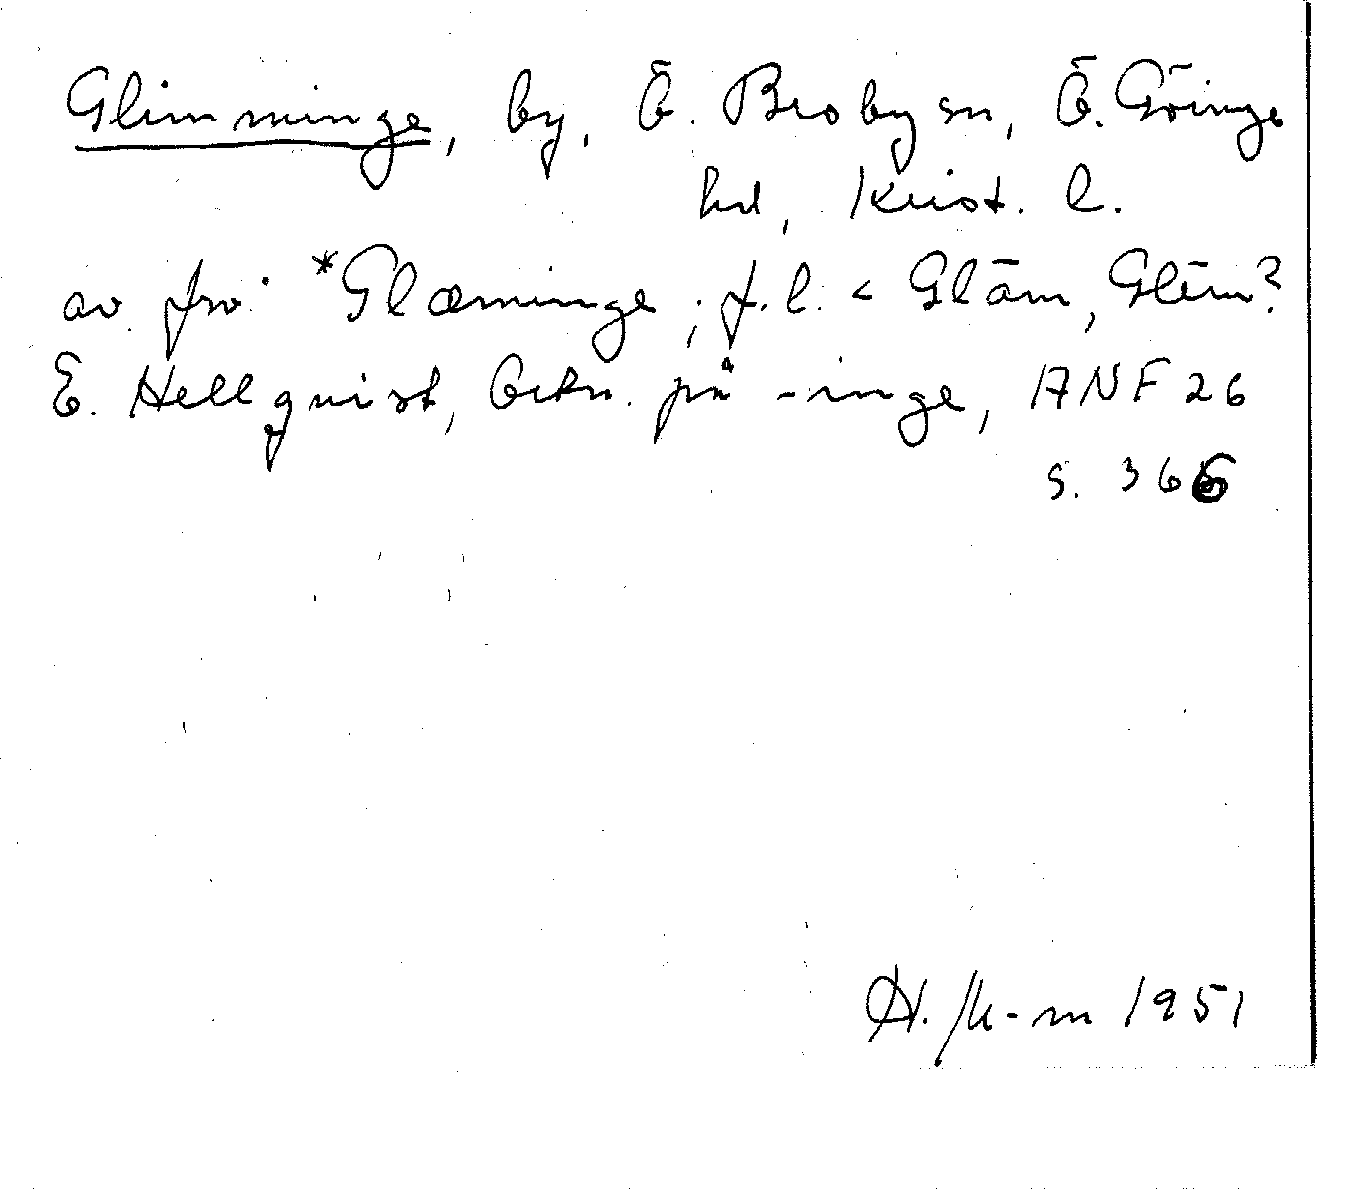 Glimminge, by, Ö. Broby sn, Ö. Göinge
hd, Krist. l.
av fsv. *Glæminge; f.l. < Glām, Glēm?
E. Hellquist, Ortn. på -inge, ANF 26
s. 366
1951